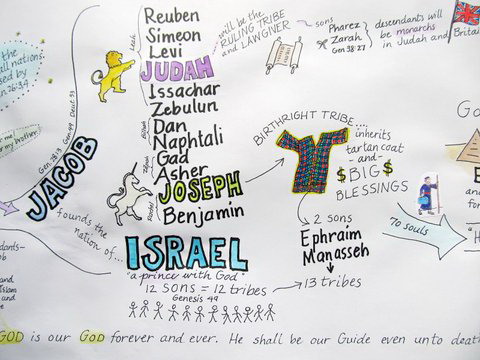 Reuben
Simeon
Levi
JUDAH
Issachar
Zebulun
Dan
Naphtali
Gad
Asher
JOSEPH
Benjamin
Leah
Rachel
will be the
RULING TRIBE
and LAWGIVER
sons
Pharez
Zarah
Gen 38:27
descendants will
be monarchs
in Judah and
Britai
the
all nations
sed by
n. 26:3-4
my brother
Gen. 28:3
Gen. 49
Deut. 33
JACOB
founds the
nation of...
ISRAEL
"a prince with God"
12 SONS = 12 tribes
Genesis 49
BIRTHRIGHT TRIBE...
inherits
tartan coat
-and-
$BIG$
BLESSINGS
2 sons
Ephraim
Manasseh
13 tribes
70 souls
Go
and
for
"H
dants-
ob
and
Islam
and
e
GOD is our GOD forever and ever. He shall be our Guide even unto death